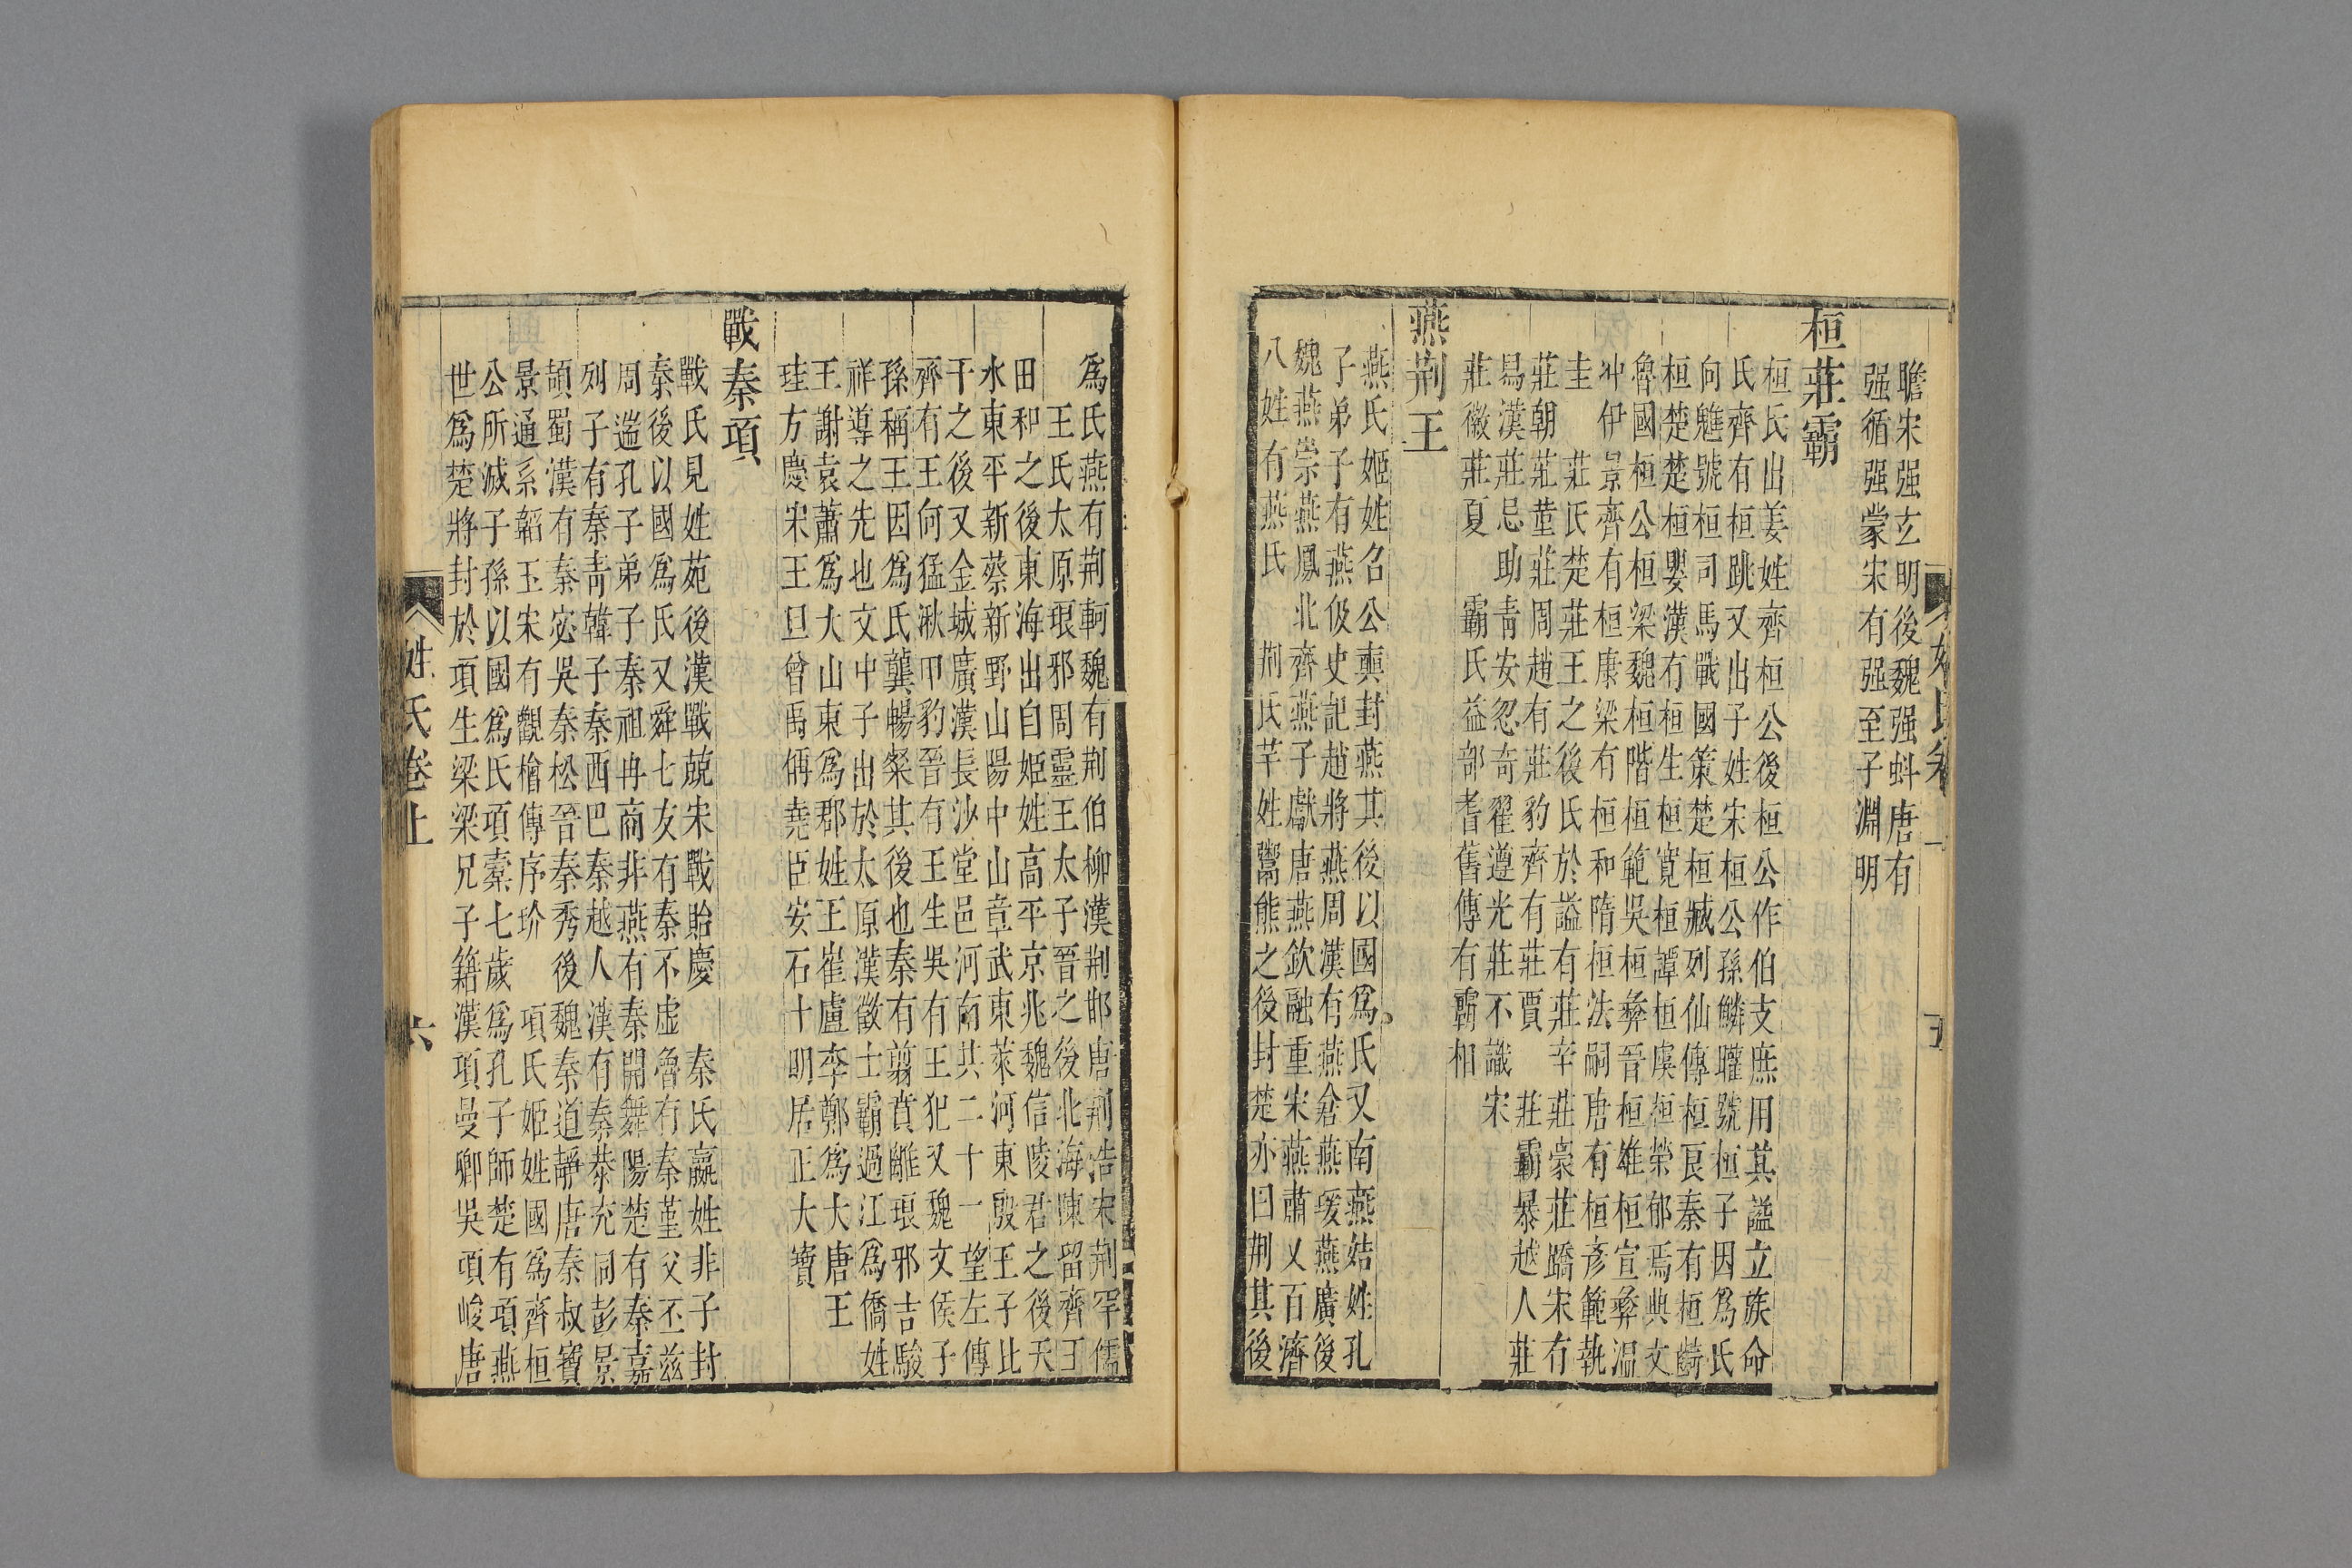 瞻宋强玄明後魏强蚪唐有
强循强蒙宋有强至子淵明
桓莊霸
桓氏出姜姓齊桓公後桓公作伯支庶用其謚立族命
氏齊有桓跳又出子姓宋桓公孫鱗矔號桓子因爲氏
向魋號桓司馬戰國策楚桓臧列仙傳桓良秦有桓齮
桓楚楚桓嬰漢有桓生桓寬桓譚桓虞桓榮郁焉典文
魯國桓公桓梁魏桓階桓範吳桓彝晉桓雄桓宣彝溫
冲伊景齊有桓康梁有桓和隋桓法嗣唐有桓彥範執
圭 莊氏楚莊王之後氏於謚有莊辛莊豪莊蹻宋有
莊朝莊堇莊周趙有莊豹齊有莊賈 莊霸暴越人莊
舄漢莊忌助青安忽奇翟遵光莊不識宋
莊徽莊夏 霸氏益部耆舊傳有霸相
燕荆王
燕氏姬姓召公奭封燕其後以國爲氏又南燕姞姓孔
子弟子有燕伋史記趙將燕周漢有燕倉燕瑗燕廣後
魏燕崇燕鳳北齊燕子獻唐燕欽融重宋燕肅又百濟
八姓有燕氏 荆氏芊姓鬻熊之後封楚亦曰荆其後
爲氏燕有荆軻魏有荆伯柳漢荆邯唐荆浩宋荆罕儒
王氏太原琅邪周靈王太子晉之後北海陳留齊王
田和之後東海出自姬姓高平京兆魏信陵君之後天
水東平新蔡新野山陽中山章武東萊河東殷王子比
干之後又金城廣漢長沙堂邑河南共二十一望左傳
齊有王何猛湫甲豹晉有王生吳有王犯又魏文侯子
孫稱王因爲氏龔暢粲其後也秦有翦賁離琅邪吉駿
祥導之先也文中子出於太原漢徵士霸過江爲僑姓
王謝袁蕭爲大山東爲郡姓王崔盧李鄭爲大唐王
珪方慶宋王旦曾禹偁堯臣安石十朋居正大寶
戰秦項
戰氏見姓苑後漢戰兢宋戰貽慶 秦氏嬴姓非子封
秦後以國爲氏又舜七友有秦不虛魯有秦堇父丕兹
周遄孔子弟子秦祖冉商非燕有秦開舞陽楚有秦嘉
列子有秦青韓子秦西巴秦越人漢有秦恭充同彭景
頡蜀漢有秦宓吳秦松晉秦秀後魏秦道靜唐秦叔寶
景通系韜玉宋有觀檜傳序玠 項氏姬姓國爲齊桓
公所滅子孫以國爲氏項橐七歲爲孔子師楚有項燕
世爲楚將封於項生梁梁兄子籍漢項曼卿吳項峻唐
姓氏卷上 六